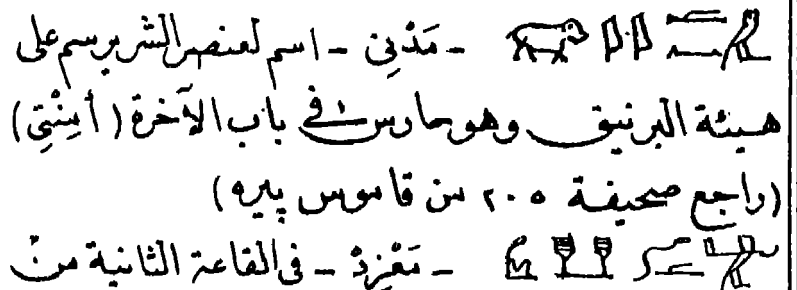 - مَدْنِى - اسم لعنصر الشر يرسم على
هيئة البرنيق وهو حارس فى باب الآخرة (أمِنْتِى)
(راجع صحيفة ٢٠٥ من قاموس پيره)
- مَعْزِدْ - فى القاعة الثانية من